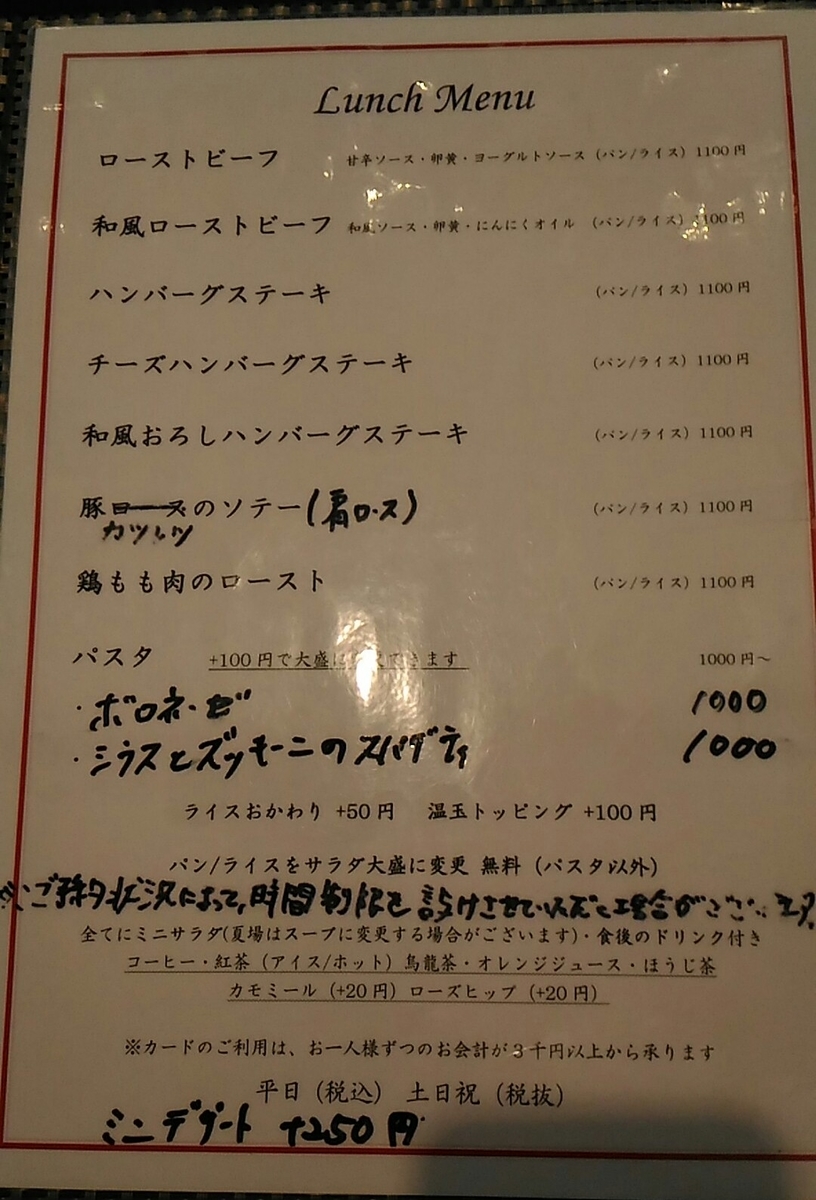 Lunch Menu
ローストビーフ 甘辛ソース・卵黄・ヨーグルトソース (パン/ライス) 1100円
和風ローストビーフ 和風ソース・卵黄・にんにくオイル (パン/ライス) 1100円
ハンバーグステーキ (パン/ライス) 1100円
チーズハンバーグステーキ (パン/ライス) 1100円
和風おろしハンバーグステーキ (パン/ライス) 1100円
豚ロースのソテー(肩ロース) (パン/ライス) 1100円
カツレツ
鶏もも肉のロースト (パン/ライス) 1100円
パスタ +100円で大盛に できます 1000円～
・ボロネーゼ 1000
・シラスとズッキーニのスパゲティ 1000
ライスおかわり +50円 温玉トッピング +100円
パン/ライスをサラダ大盛に変更 無料 (パスタ以外)
状況によって、時間制限を設けさせていただく場合がござい
全てにミニサラダ(夏場はスープに変更する場合がございます)・食後のドリンク付き
コーヒー・紅茶 (アイス/ホット) 烏龍茶・オレンジジュース・ほうじ茶
カモミール (+20円) ローズヒップ (+20円)
※カードのご利用は、お一人様ずつのお会計が3千円以上から承ります
平日 (税込) 土日祝 (税抜)
ミニデザート +250円